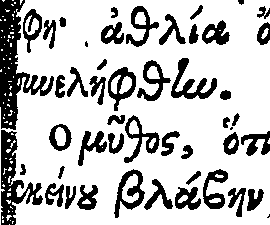 φη· ἀθλία
συνελήφθην.
Ὁ μῦθος, ὅτι
ἐκείνου βλάβην